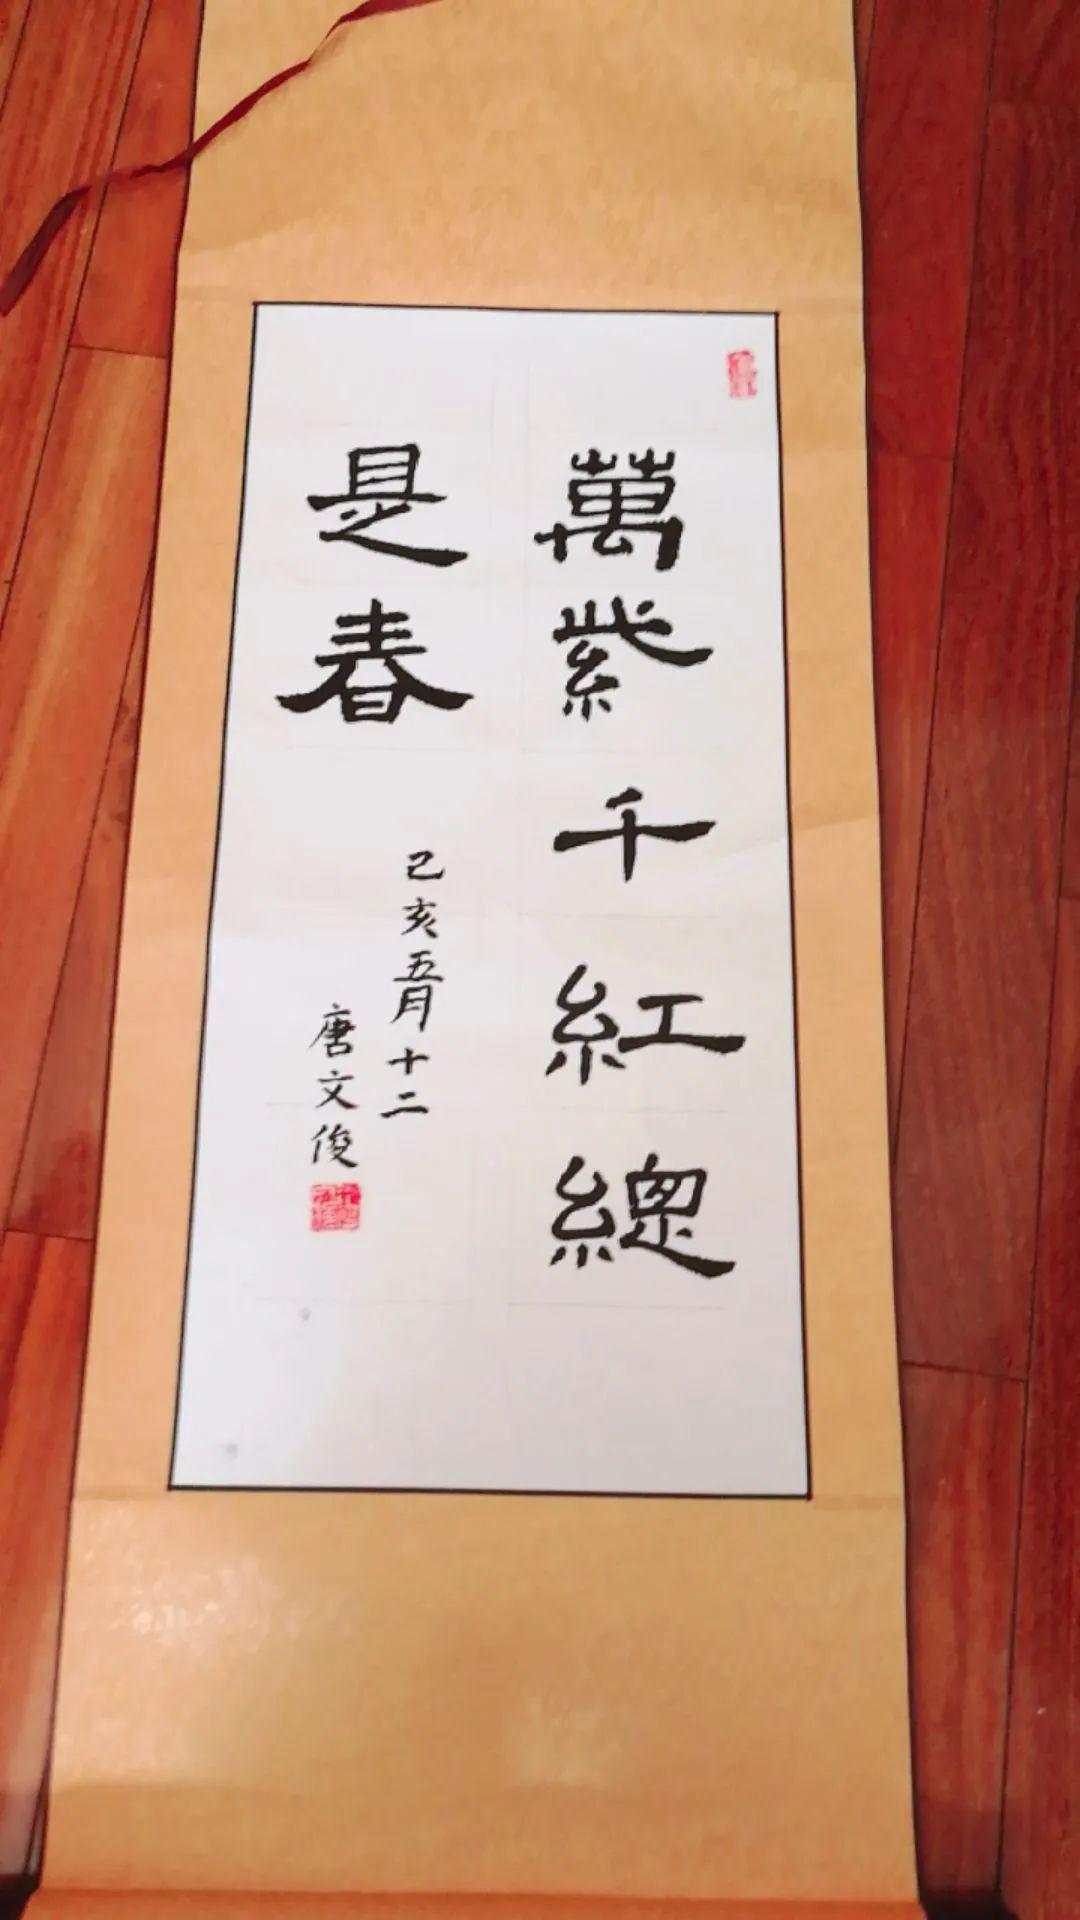 萬紫千紅總
是春
己亥五月十二
唐文俊